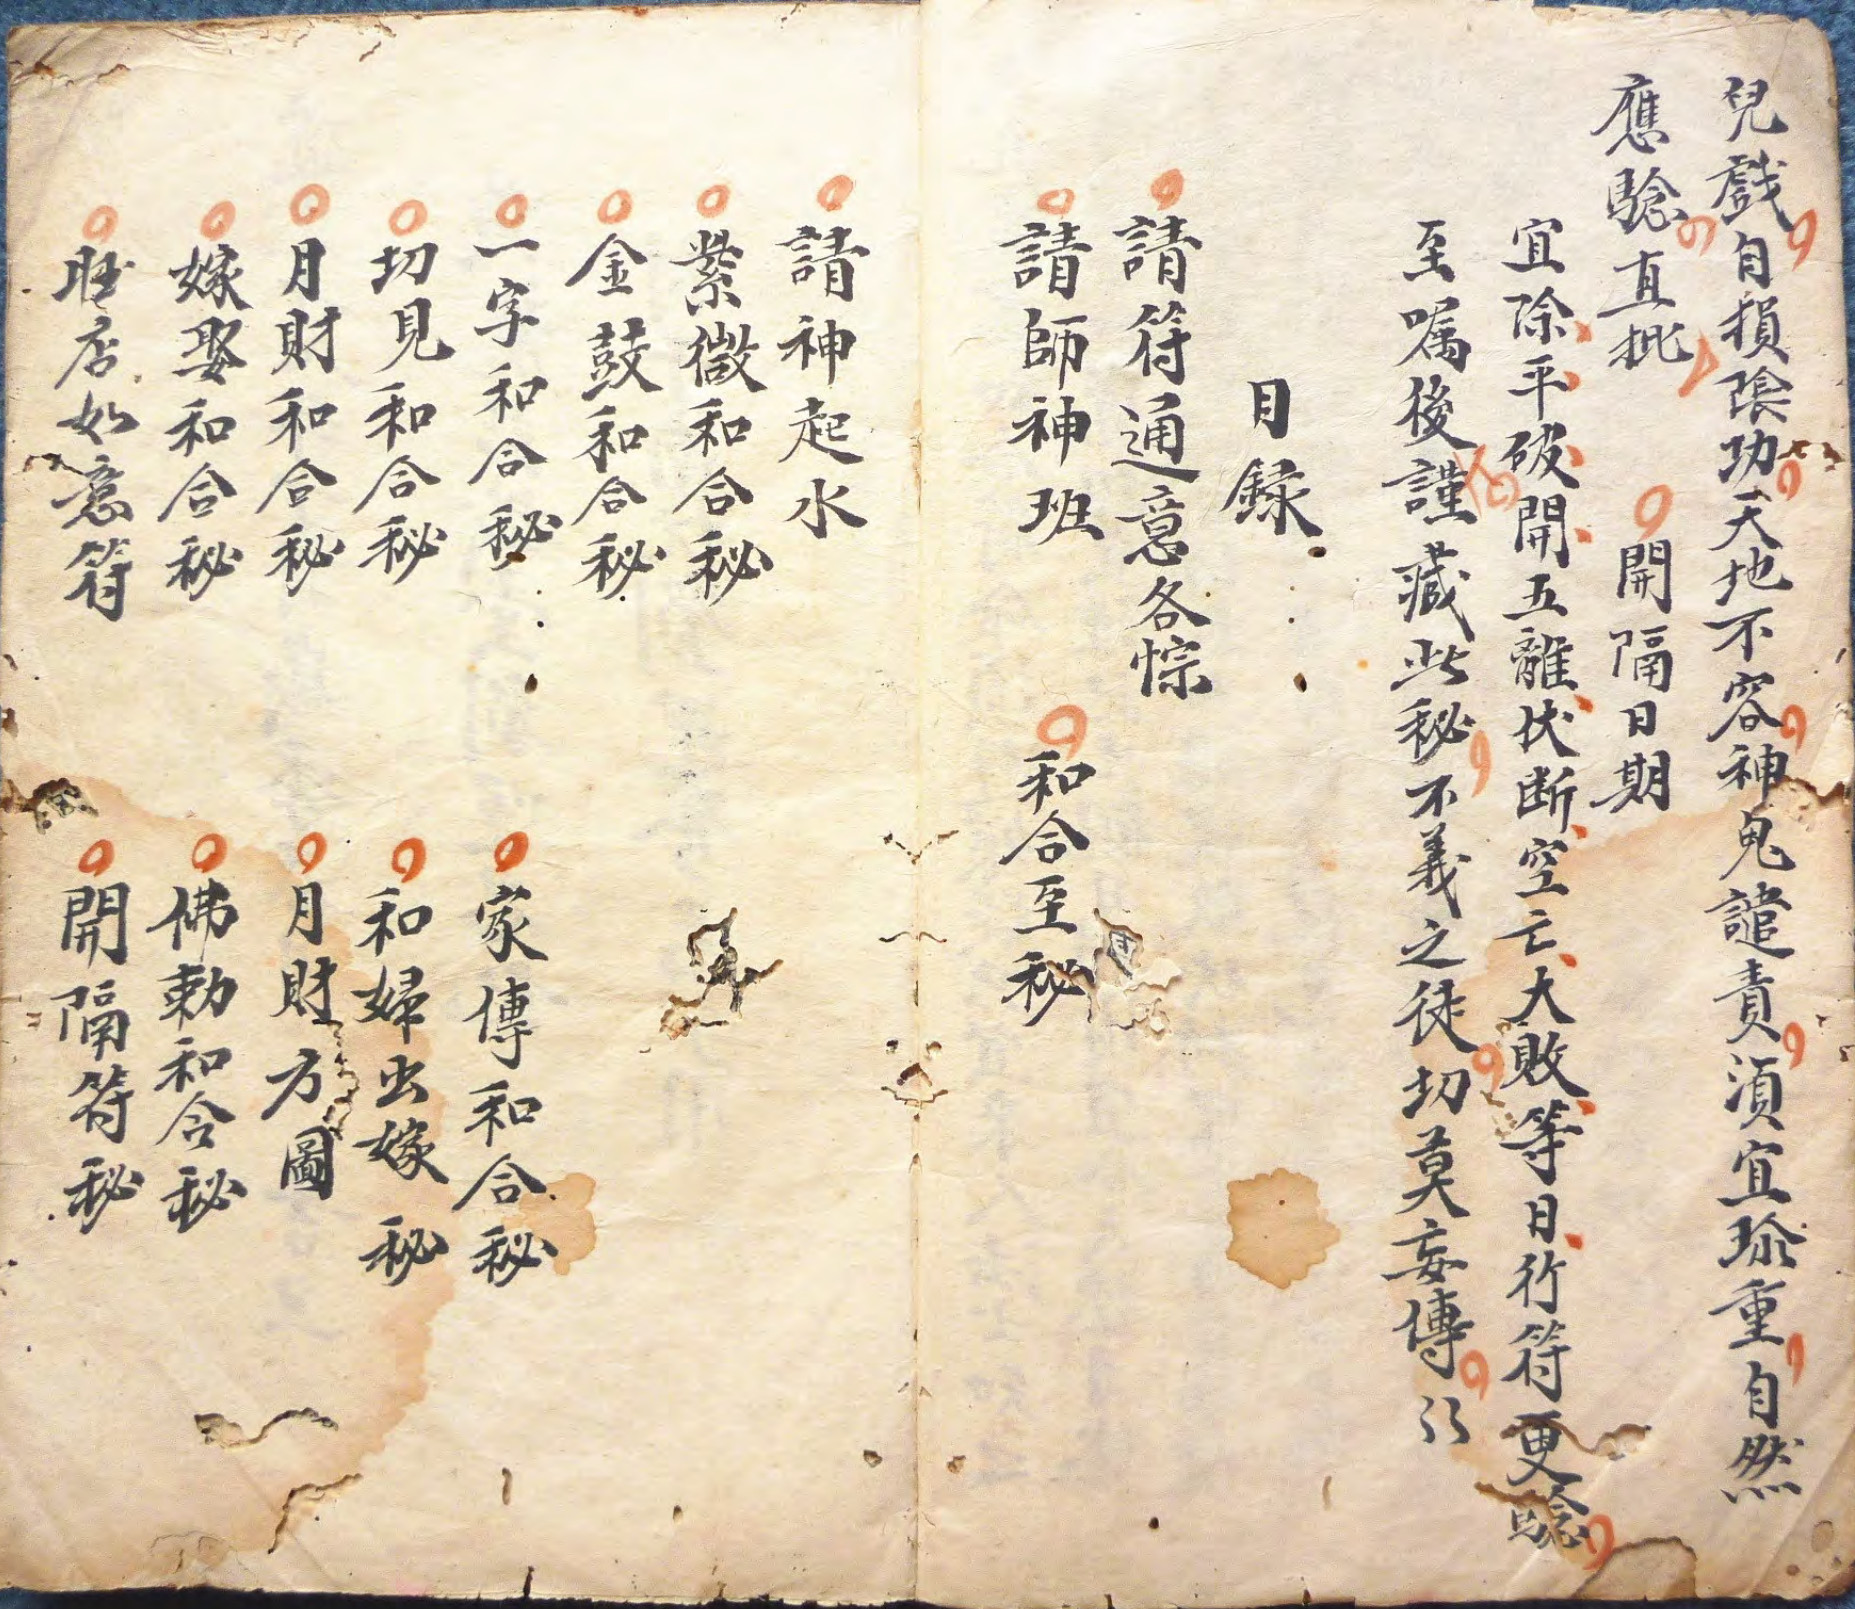 兒戲自損陰功天地不容神鬼譴責湏宜珎重自然
應騐直批 開隔日期
宜除平破開五離伏断空亡大敗等日行符更騐
至嘱後謹藏此秘不義之徒切莫妄傳
目録
請符通意各悰
請師神班 和合至秘
請神起水
紫微和合秘
金鼓和合秘
一字和合秘 家傳和合秘
切見和合秘 和婦出嫁秘
月財和合秘 月財方圖
嫁娶和合秘 佛勅和合秘
店如意符 開隔符秘